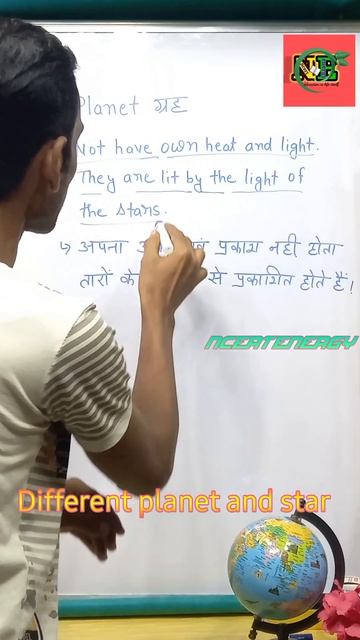 NE
Planet ग्रह
Not have own heat and light.
They are lit by the light of
the stars.
↳ अपना प्रकाश नही होता
तारों के से प्रकाशित होते हैं!
NCERTENERGY
Different planet and star